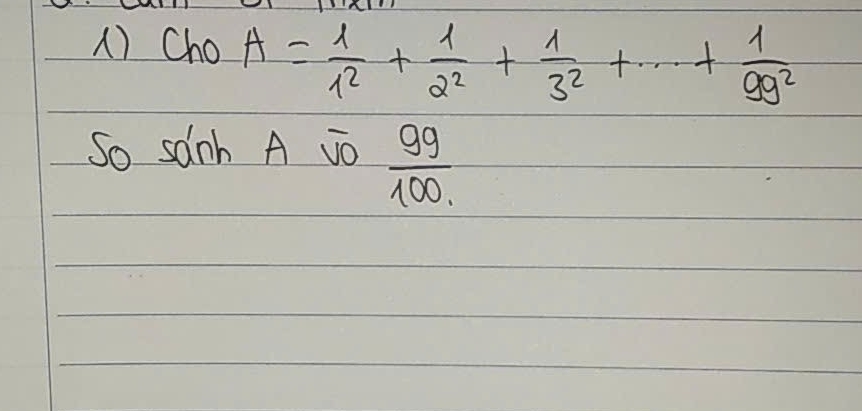 1) Cho A = 1/1² + 1/2² + 1/3² + .... + 1/99²
So sánh A vō 99/100.